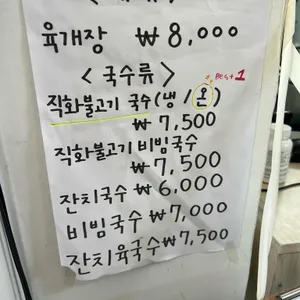 육개장 ₩8,000
< 국수류 >
Best 1
직화불고기 국수(냉 / 온)
₩7,500
직화불고기 비빔국수
₩7,500
잔치국수 ₩6,000
비빔국수 ₩7,000
잔치육국수 ₩7,500